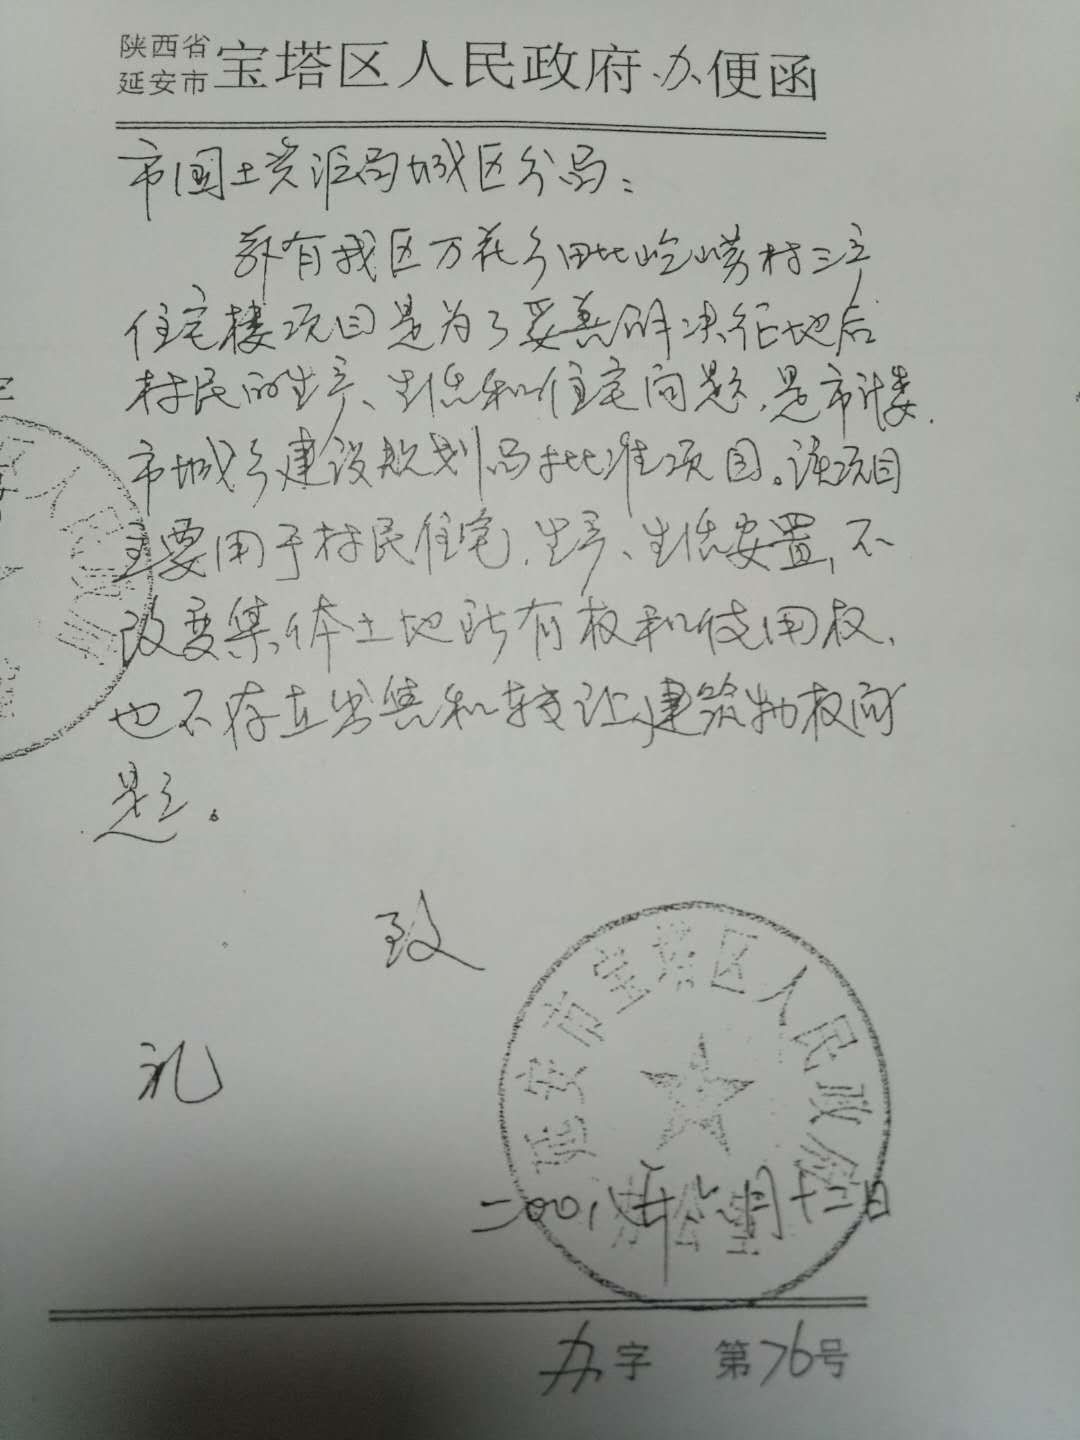 陕西省
延安市
宝塔区人民政府办便函
市国土资源局城区分局：
现有我区万花乡毗圪崂村三产
住宅楼项目是为了妥善解决征地后
村民的生产、生活和住宅问题，是市计委、
市城乡建设规划局批准项目。该项目
主要用于村民住宅、生产、生活安置，不
改变集体土地所有权和使用权，
也不存在出售和转让建筑物权问
题。
致
礼
延安市宝塔区人民政府
办公室
月十二日
办字 第76号
人民政府